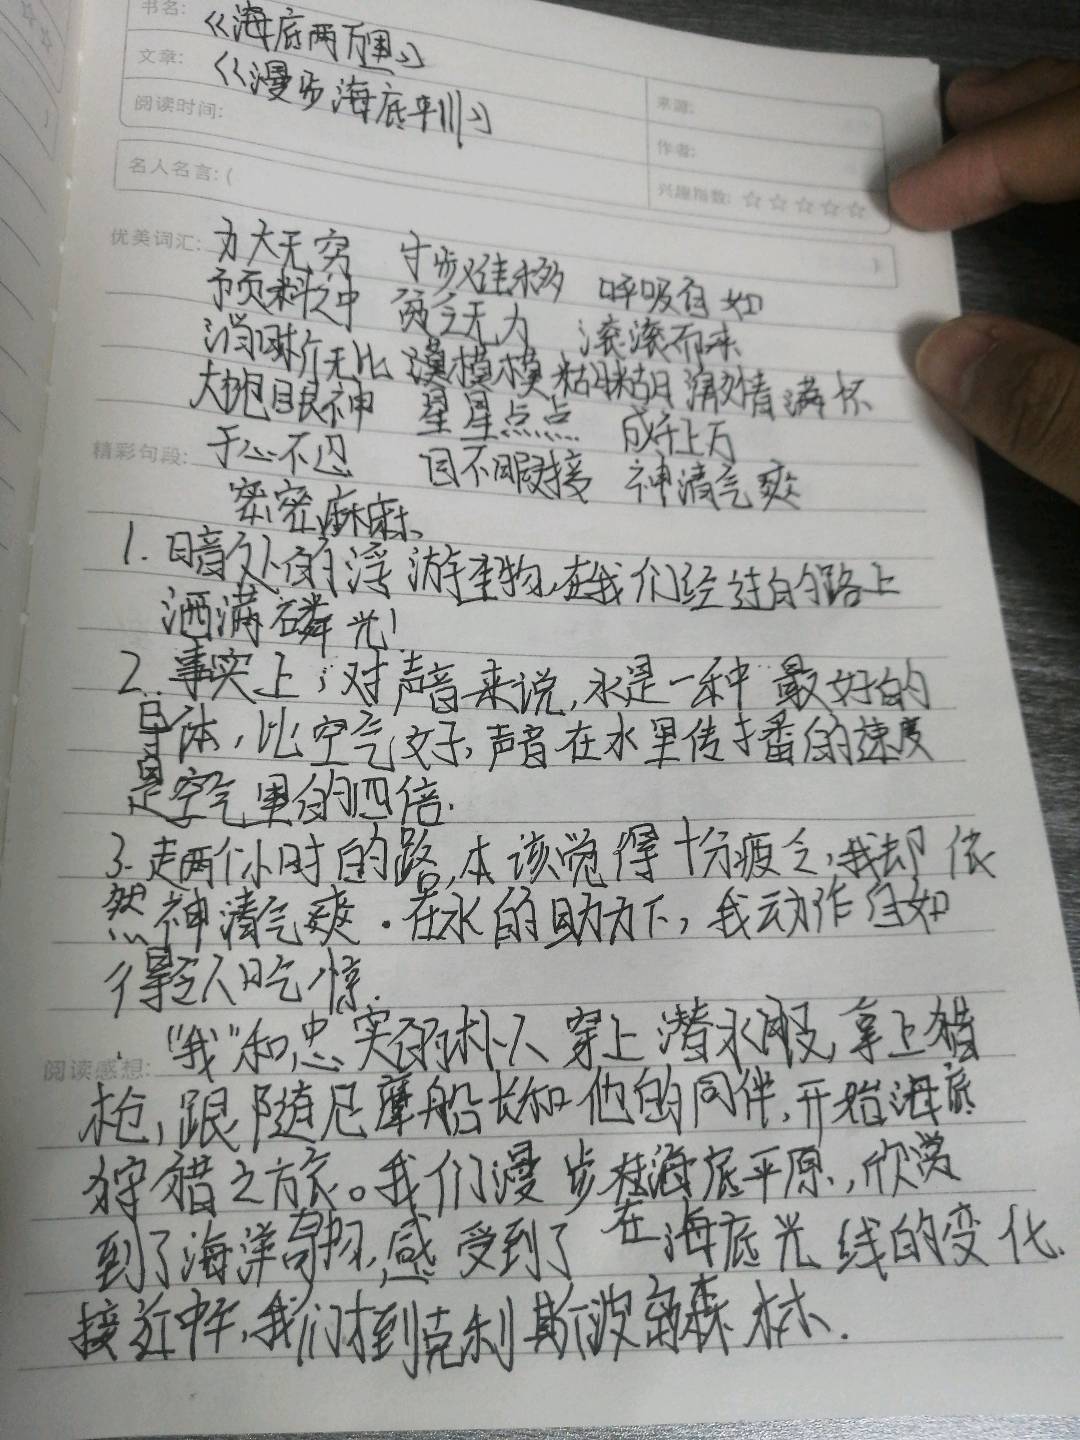 书名: 《海底两万里》
文章: 《漫步海底平川》
来源:
阅读时间:
作者:
名人名言: (
兴趣指数: ☆☆☆☆☆
)
优美词汇: 力大无穷 寸步难移 呼吸自如
予页料之中 软弱无力 滚滚而来
清晰无比 模模糊糊 满情满怀
大跑眼神 星星点点 成千上万
精彩句段: 于心不忍 目不暇接 神清气爽
密密麻麻
1. 暗处的浮游生物,在我们经过的路上
洒满磷光!
2. 事实上,对声音来说,水是一种最好的
导体,比空气好,声音在水里传播的速度
是空气里的四倍.
3. 走两个小时的路,本该觉得十分疲乏,我却依
然神清气爽.在水的助力下,我动作自如
得令人吃惊.
阅读感想: “我”和忠实的朴人穿上潜水服,拿上猎
枪,跟随尼摩船长和他的同伴,开始海底
狩猎之旅。我们漫步在海底平原,欣赏
到了海洋奇物,感受到了在海底光线的变化.
接近中午,我们才到克利斯波岛森林.